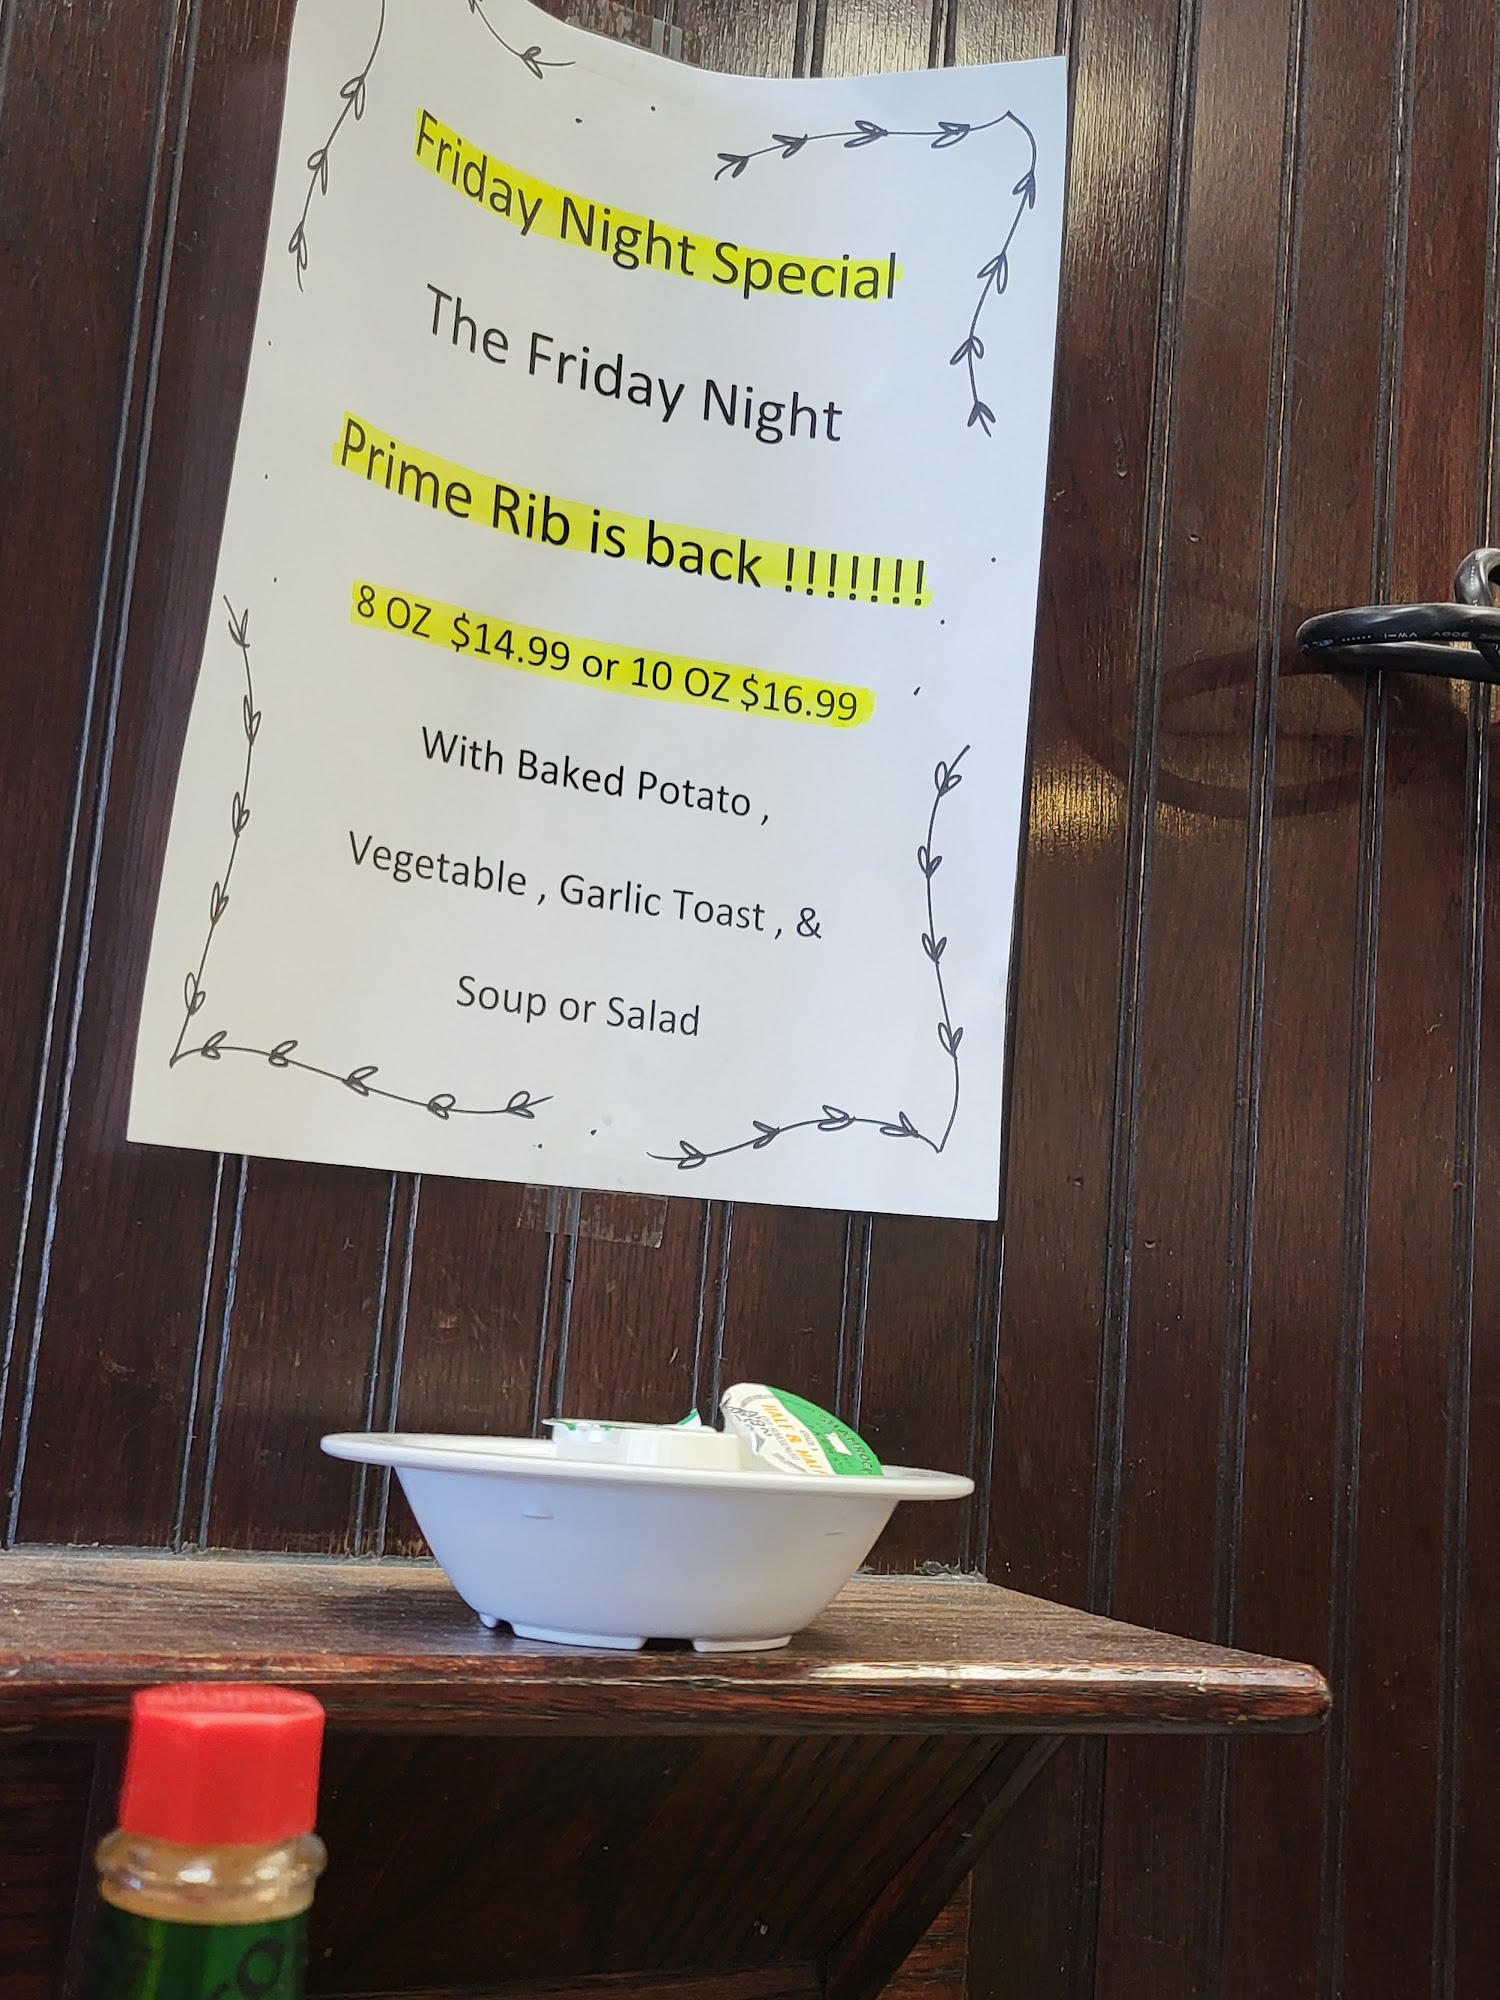 Friday Night Special
The Friday Night
Prime Rib is back !!!!!!!
8 OZ $14.99 or 10 OZ $16.99
With Baked Potato ,
Vegetable , Garlic Toast , &
Soup or Salad
HALF & HALF
SHAMROCK